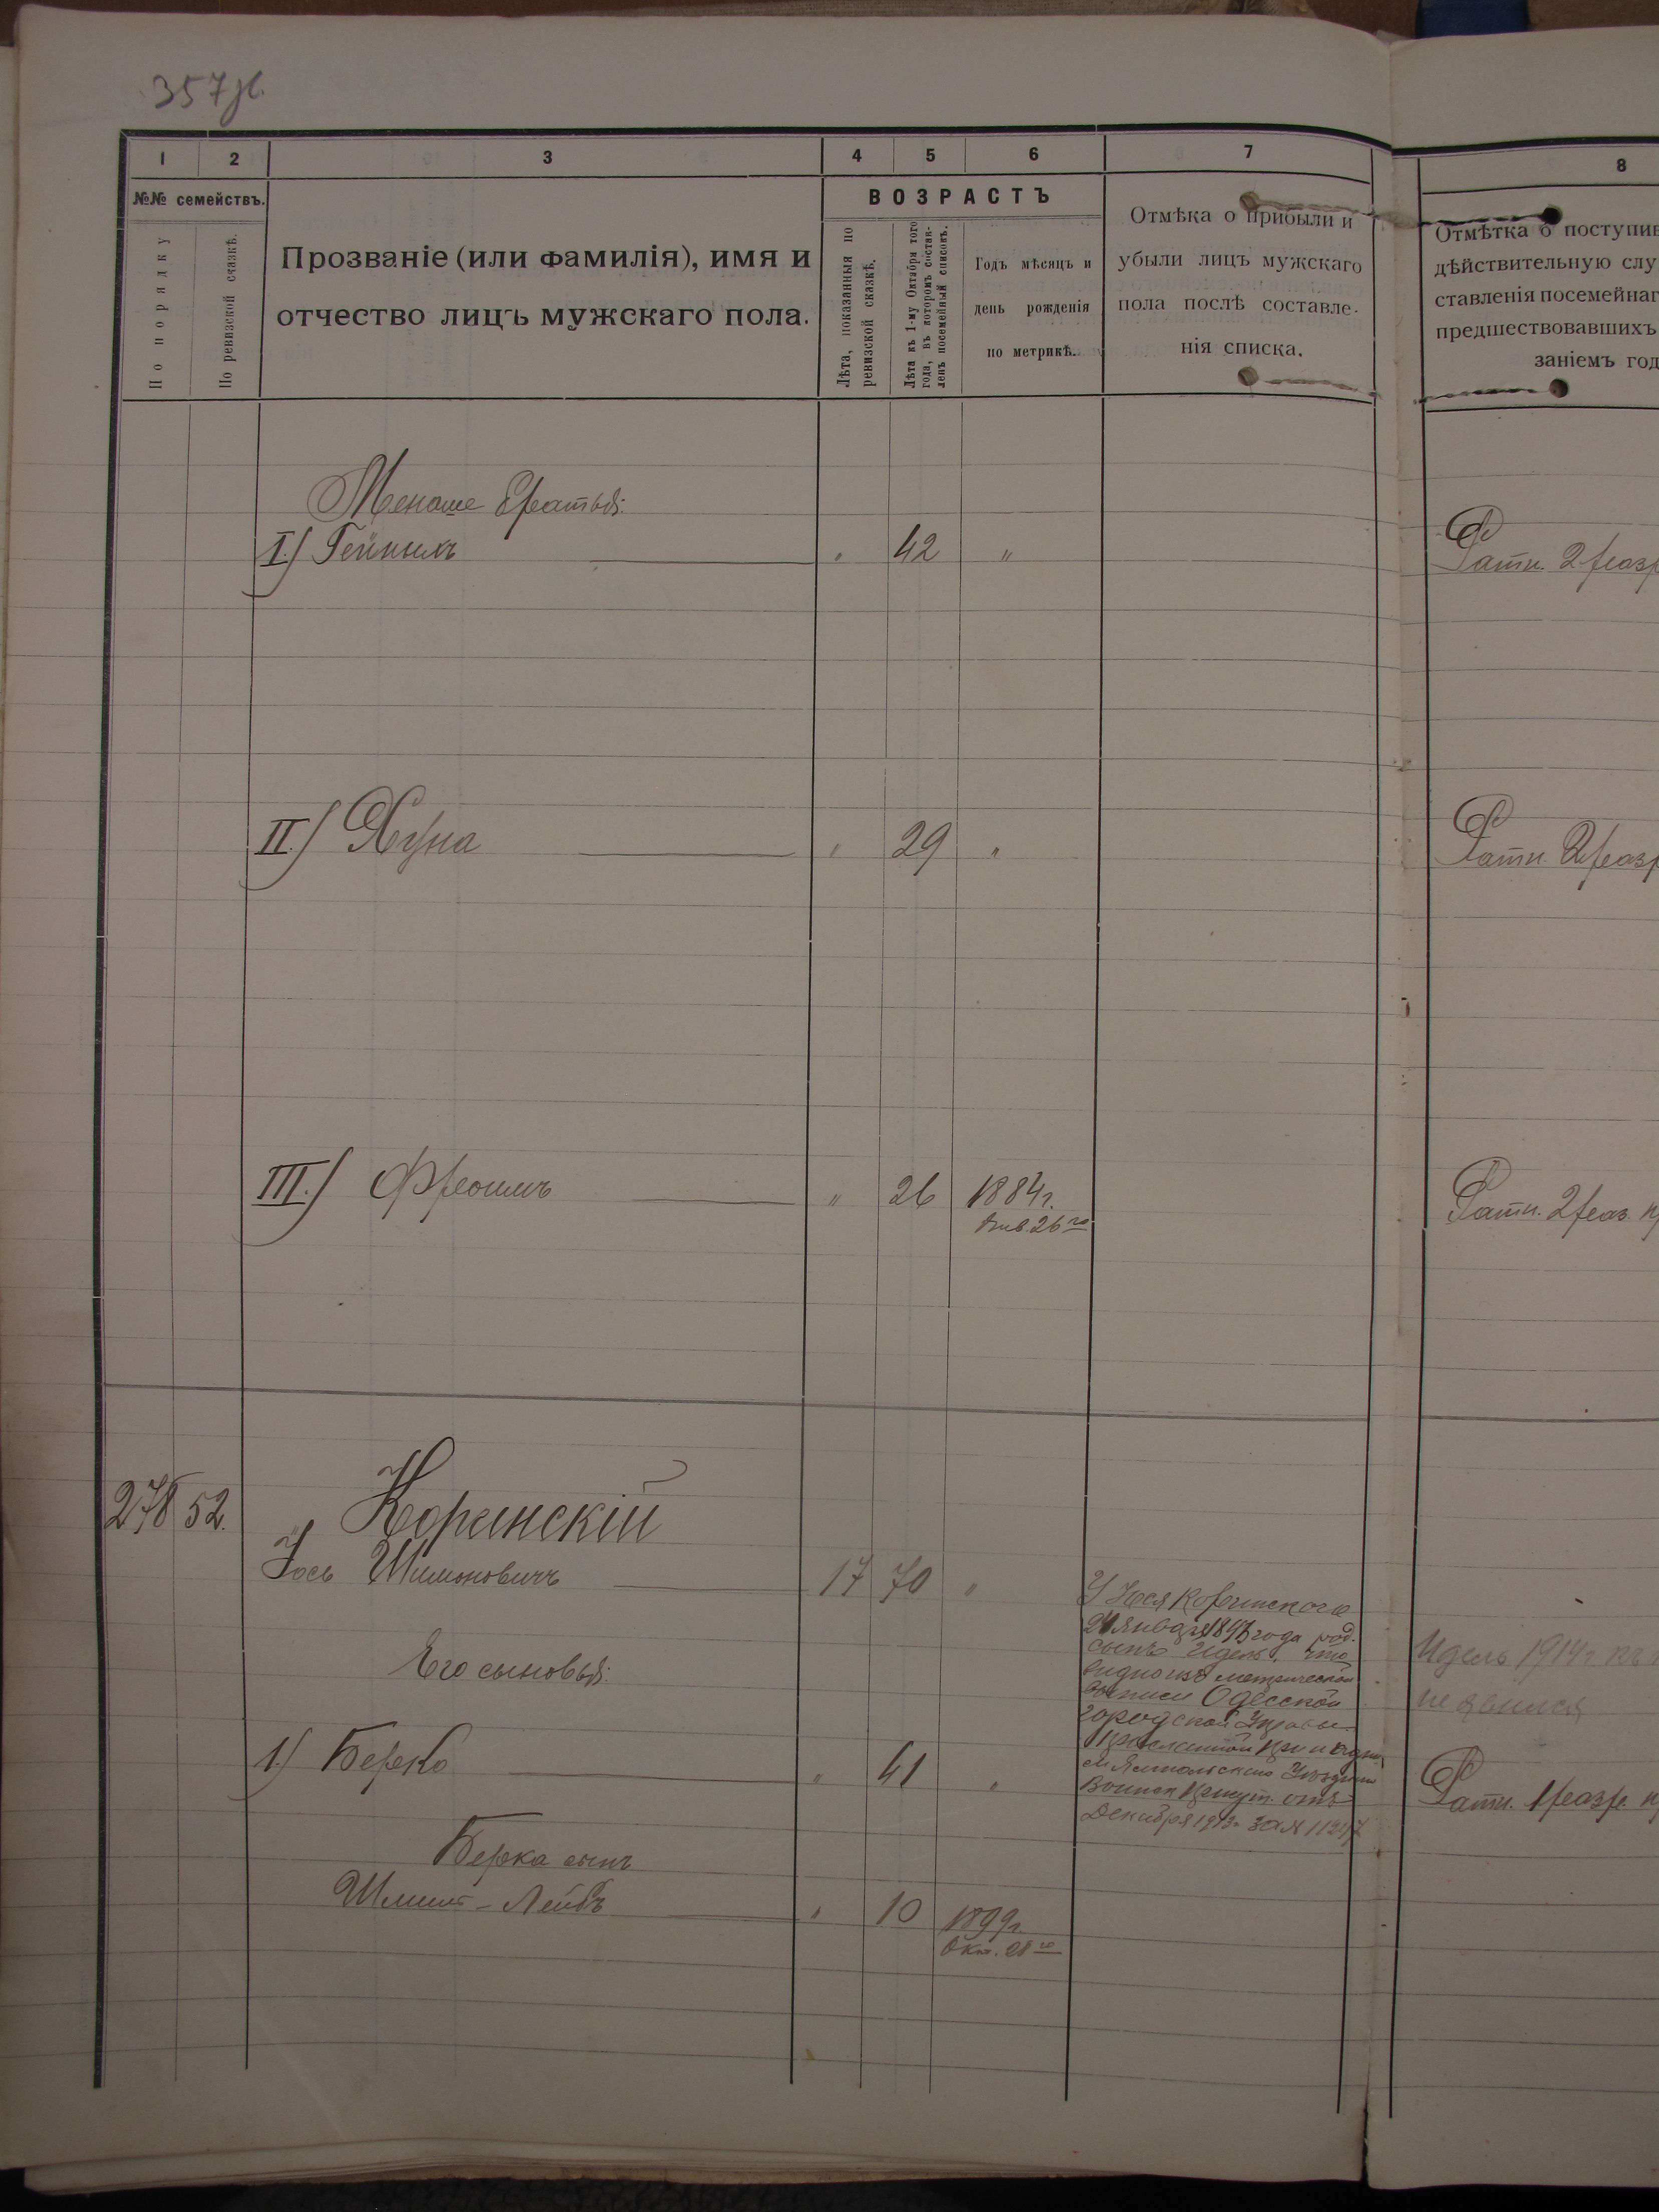 357
1 2 3 4 5 6 7 8
№№ семействъ.
По порядку
По ревизской сказкѣ.
Прозваніе (или фамилія), имя и
отчество лицъ мужскаго пола.
ВОЗРАСТЪ
Лѣта, показанныя по
ревизской сказкѣ.
Лѣта къ 1-му Октября того
года, въ которомъ состав-
ленъ посемейный списокъ.
Годъ мѣсяцъ и
день рожденія
по метрикѣ.
Отмѣка о прибыли и
убыли лицъ мужскаго
пола послѣ составле-
нія списка.
Отмѣтка о поступив
дѣйствительную слу
ставленія посемейнаг
предшествовавшихъ
заніемъ год
Менаше братья:
I.) Гейнихъ " 42 "
Ратн. 2 разр
II.) Хуна " 29 "
Ратн. 2 разр
III.) Фроимъ " 26 1884 г.
Янв. 26 го
Ратн. 2 раз.
278 52. Коринскій
Іось Шимоновичъ 17 70 "
У Іося Коринскаго
24 января 1893 года род.
сынъ Идель, что
видно изъ метрической
выписи Одесской
городской Управы
присланной при
Ямпольскаго Уѣзднаго
Воинск Присут. отъ
Декабря 1913 г за № 11247
Идель 1914 г
не явился
Его сыновья:
1.) Берко " 41 "
Ратн. 1 разр.
Берка сынъ
Лейбъ " 10 1899 г.
Окт. 28 го